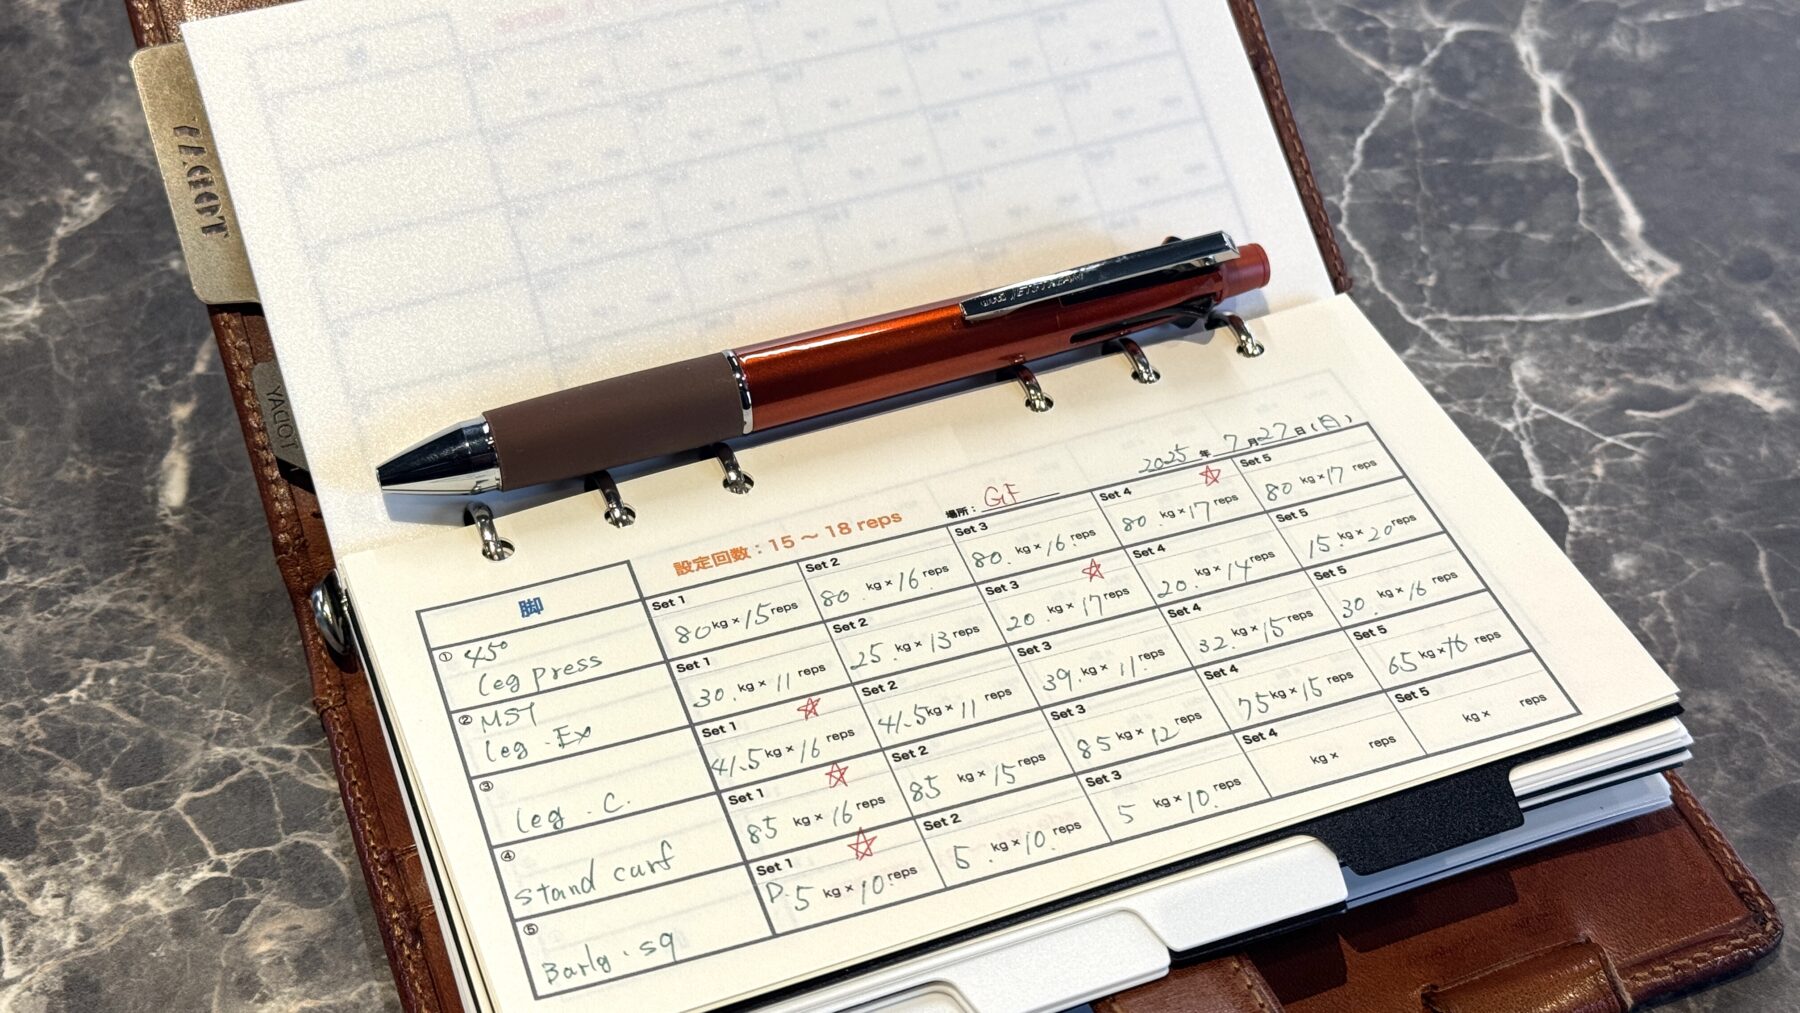 TODAY
TODAY
uni JETSTREAM
2025年 7月27日(日)
場所: GF
設定回数:15〜18 reps
脚
① 45° leg press
Set 1 80 kg × 15 reps
Set 2 80. kg × 16 reps
Set 3 80. kg × 16. reps
Set 4 80 kg × 17 reps
Set 5 80 kg × 17 reps
② MST leg . Ex
Set 1 30. kg × 11 reps
Set 2 25. kg × 13 reps
Set 3 20. kg × 17 reps
Set 4 20. kg × 14 reps
Set 5 15. kg × 20 reps
③ leg . C.
Set 1 41.5 kg × 16 reps
Set 2 41.5 kg × 11 reps
Set 3 39. kg × 11. reps
Set 4 32. kg × 15 reps
Set 5 30. kg × 16 reps
④ stand curf
Set 1 85 kg × 16 reps
Set 2 85 kg × 15 reps
Set 3 85 kg × 12 reps
Set 4 75 kg × 15 reps
Set 5 65 kg × 16 reps
⑤ Barlg . sq
Set 1 D. 5 kg × 10. reps
Set 2 5. kg × 10. reps
Set 3 5 kg × 10. reps
Set 4 kg × reps
Set 5 kg × reps